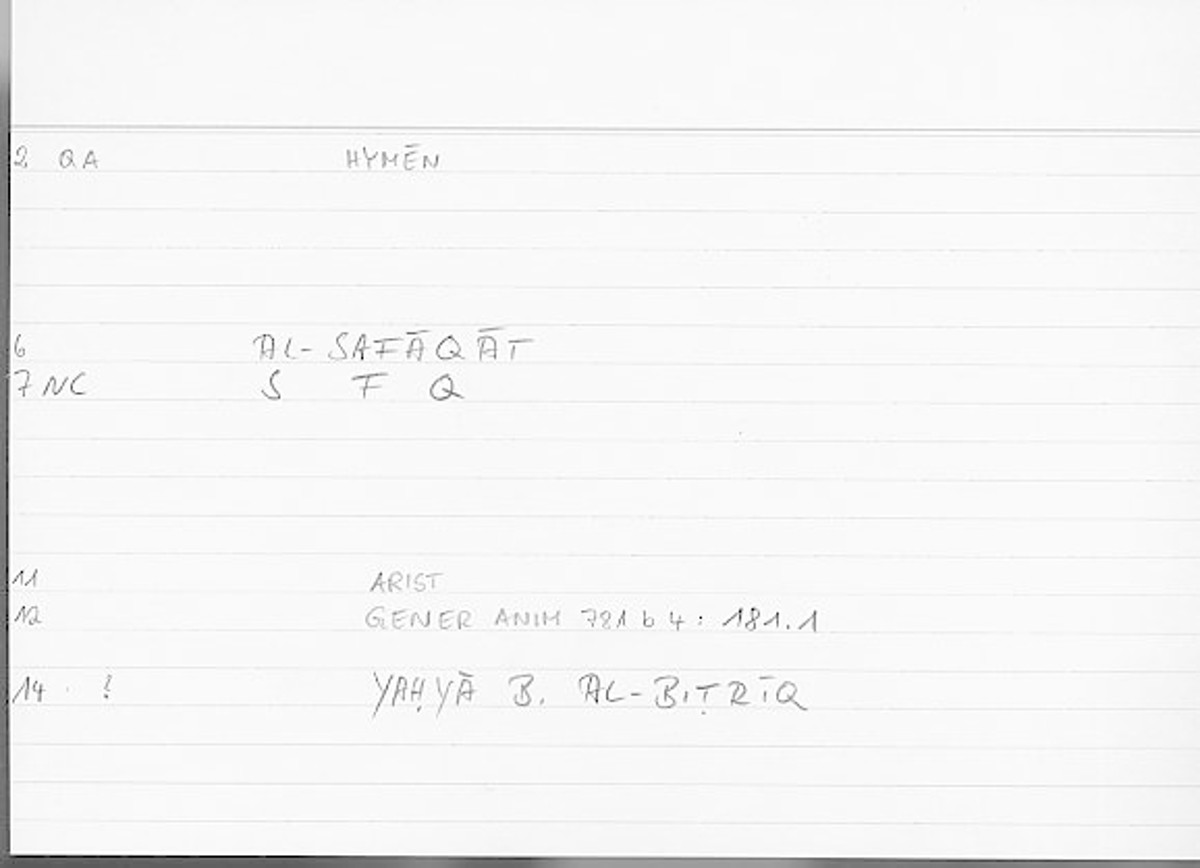 2 QA HYMĒN
6 AL-SAFĀQĀT
7 NC S F Q
11 ARIST
12 GENER ANIM 781 b 4 : 181.1
14 ? YAḤYĀ B. AL-BIṬRĪQ